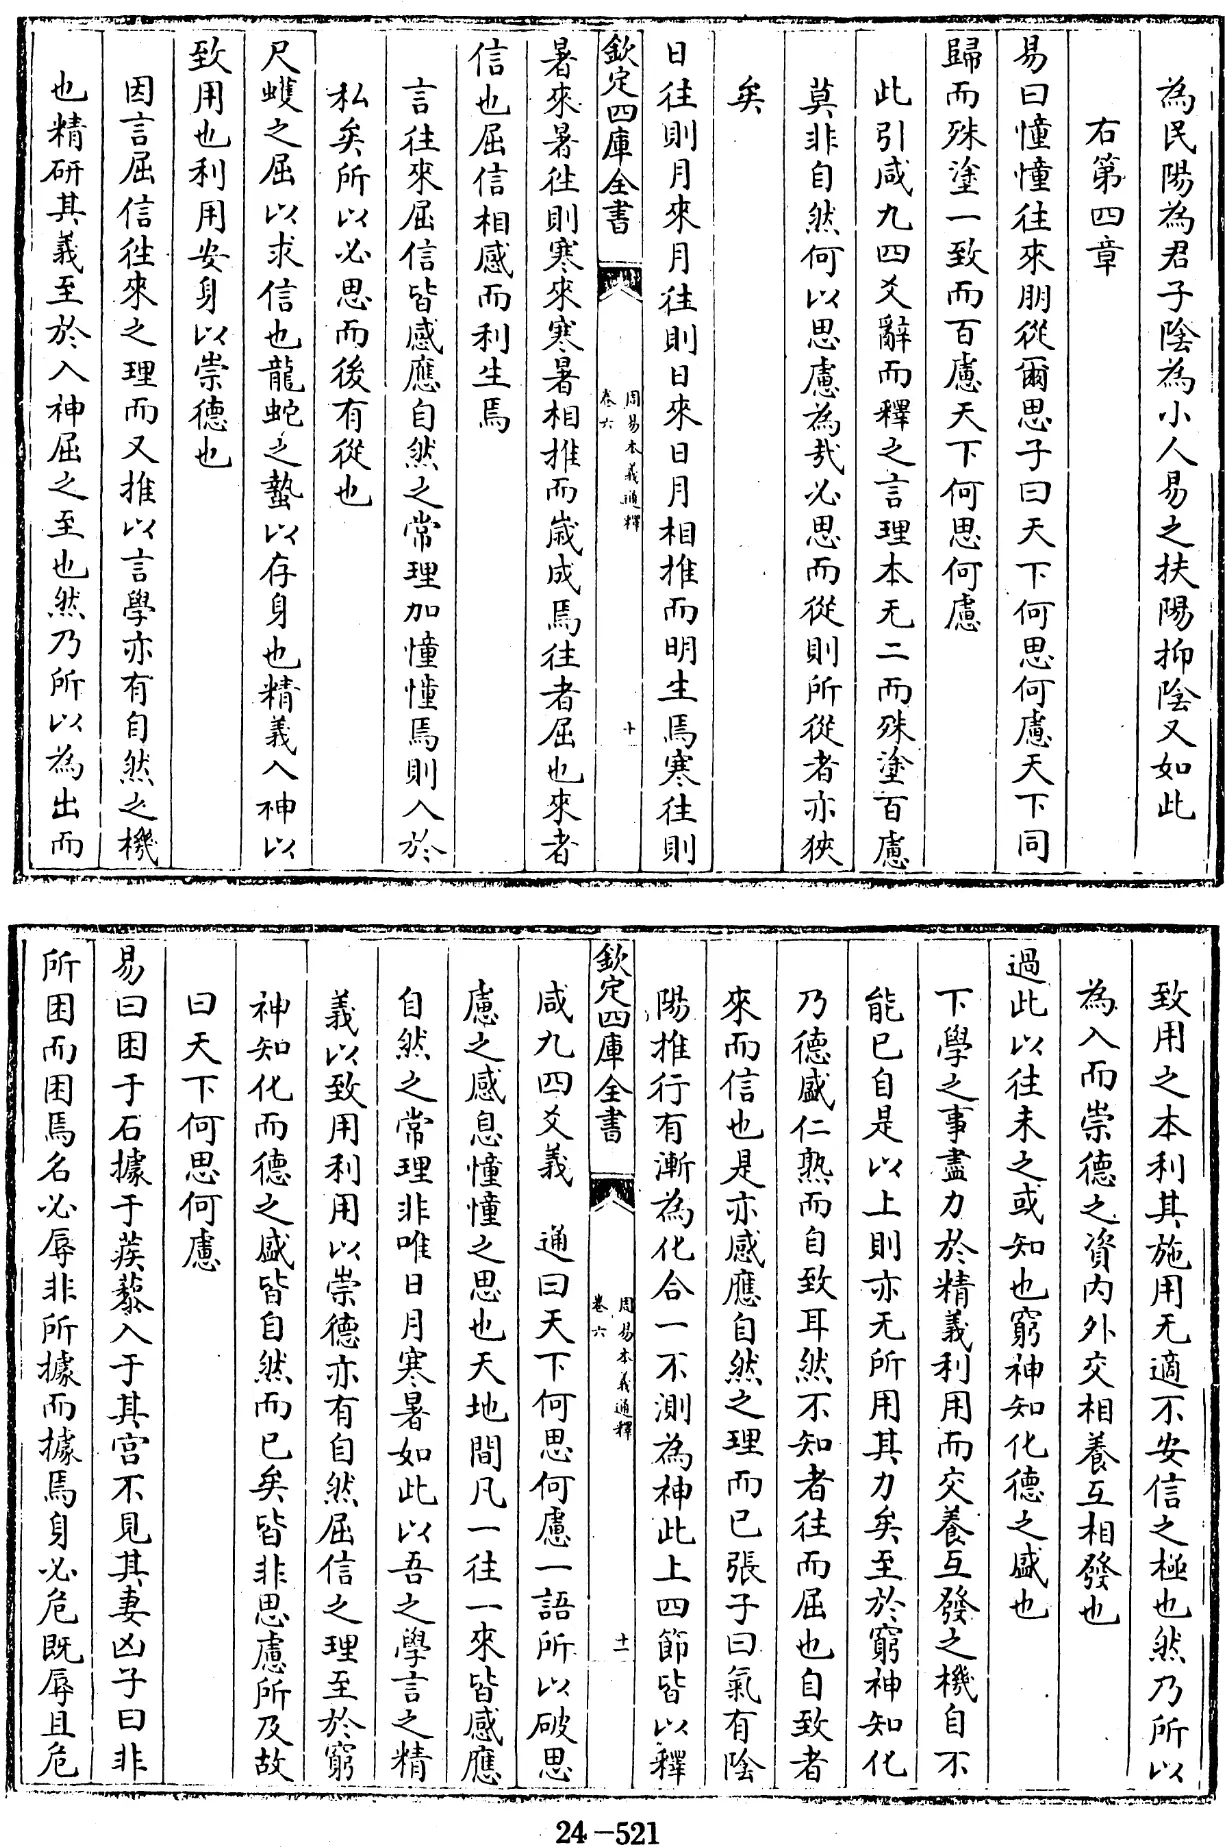 為民陽為君子陰為小人易之扶陽抑陰又如此
右第四章
易曰憧憧往來朋從爾思子曰天下何思何慮天下同
歸而殊塗一致而百慮天下何思何慮
此引咸九四爻辭而釋之言理本无二而殊塗百慮
莫非自然何以思慮為哉必思而從則所從者亦狹
矣
日往則月來月往則日來日月相推而明生焉寒往則
欽定四庫全書
周易本義通釋
卷六
十
暑來暑往則寒來寒暑相推而歲成焉往者屈也來者
信也屈信相感而利生焉
言往來屈信皆感應自然之常理加憧憧焉則入於
私矣所以必思而後有從也
尺蠖之屈以求信也龍蛇之蟄以存身也精義入神以
致用也利用安身以崇德也
因言屈信往來之理而又推以言學亦有自然之機
也精研其義至於入神屈之至也然乃所以為出而
致用之本利其施用无適不安信之極也然乃所以
為入而崇德之資內外交相養互相發也
過此以往未之或知也窮神知化德之盛也
下學之事盡力於精義利用而交養互發之機自不
能已自是以上則亦无所用其力矣至於窮神知化
乃德盛仁熟而自致耳然不知者往而屈也自致者
來而信也是亦感應自然之理而已張子曰氣有陰
陽推行有漸為化合一不測為神此上四節皆以釋
欽定四庫全書
周易本義通釋
卷六
十一
咸九四爻義 通曰天下何思何慮一語所以破思
慮之感息憧憧之思也天地間凡一往一來皆感應
自然之常理非唯日月寒暑如此以吾之學言之精
義以致用利用以崇德亦有自然屈信之理至於窮
神知化而德之盛皆自然而已矣皆非思慮所及故
曰天下何思何慮
易曰困于石據于蒺藜入于其宮不見其妻凶子曰非
所困而困焉名必辱非所據而據焉身必危既辱且危
24-521